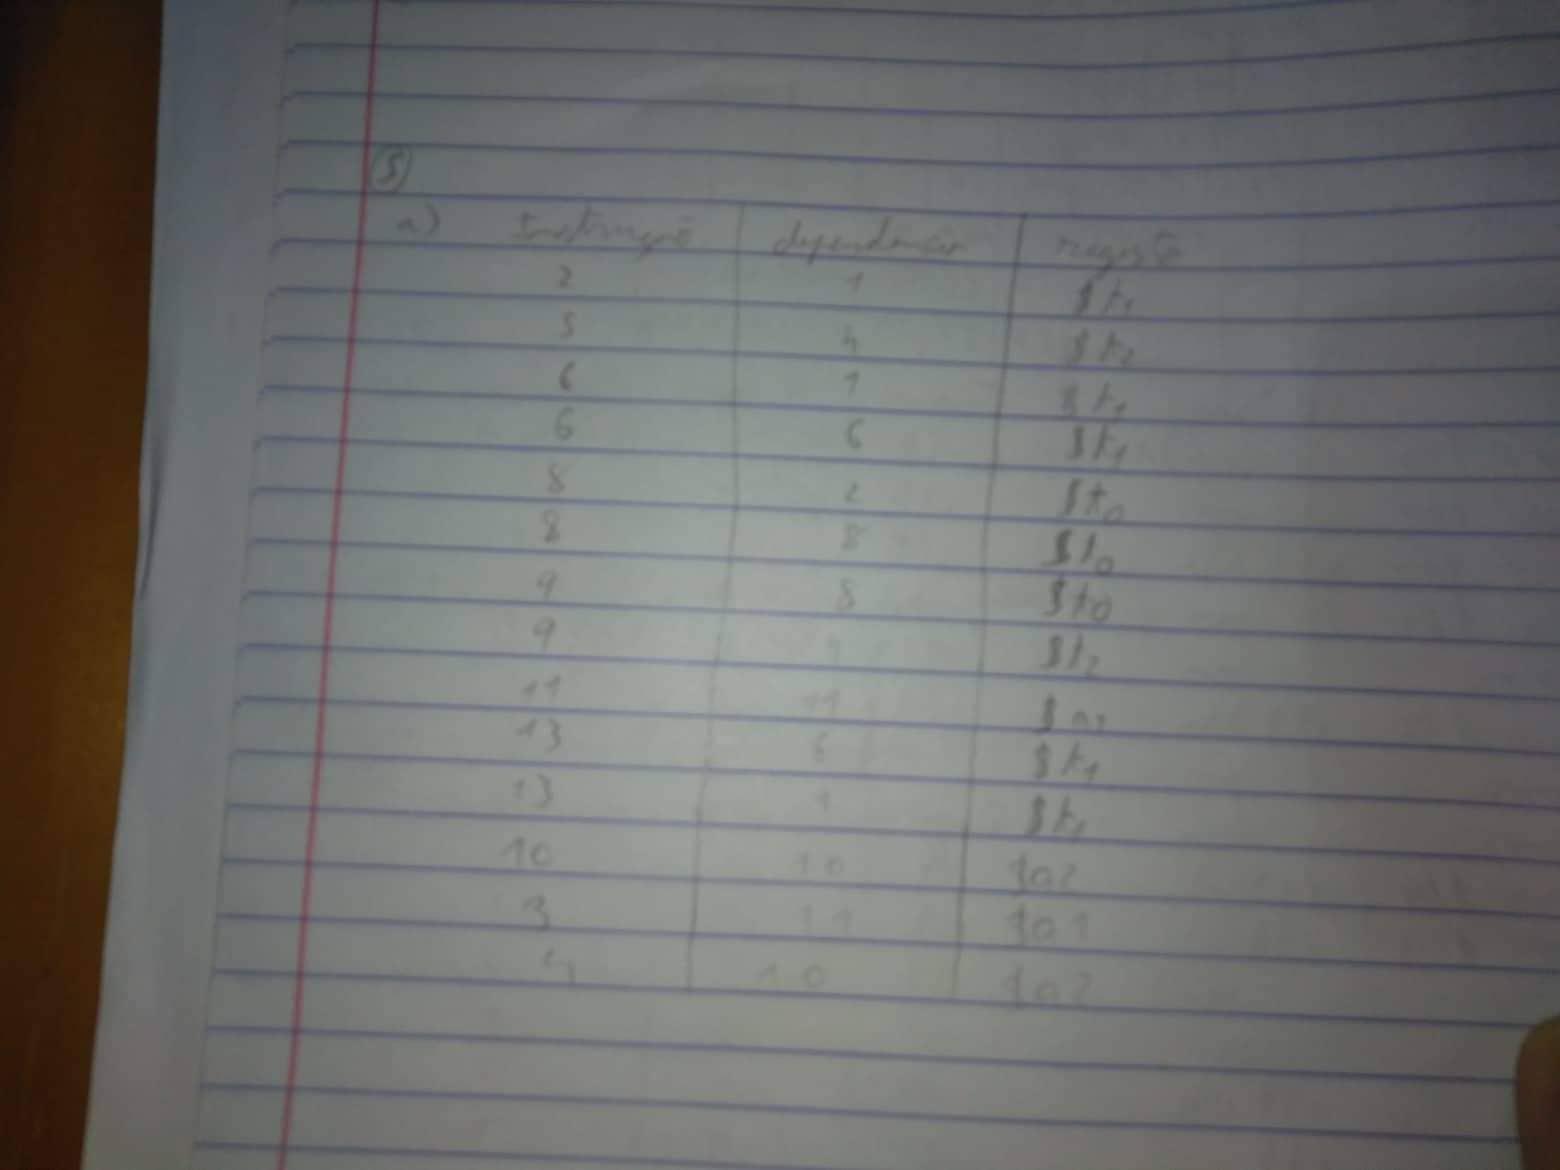 5
a) Instrução dependência registo
2 1 $t1
5 4 $t2
6 1 $t1
6 6 $t1
8 2 $t0
8 8 $t0
9 8 $t0
9 $t2
11 11 $a1
13 6 $t1
13 1 $t1
10 10 $a2
3 11 $a1
4 10 $a2